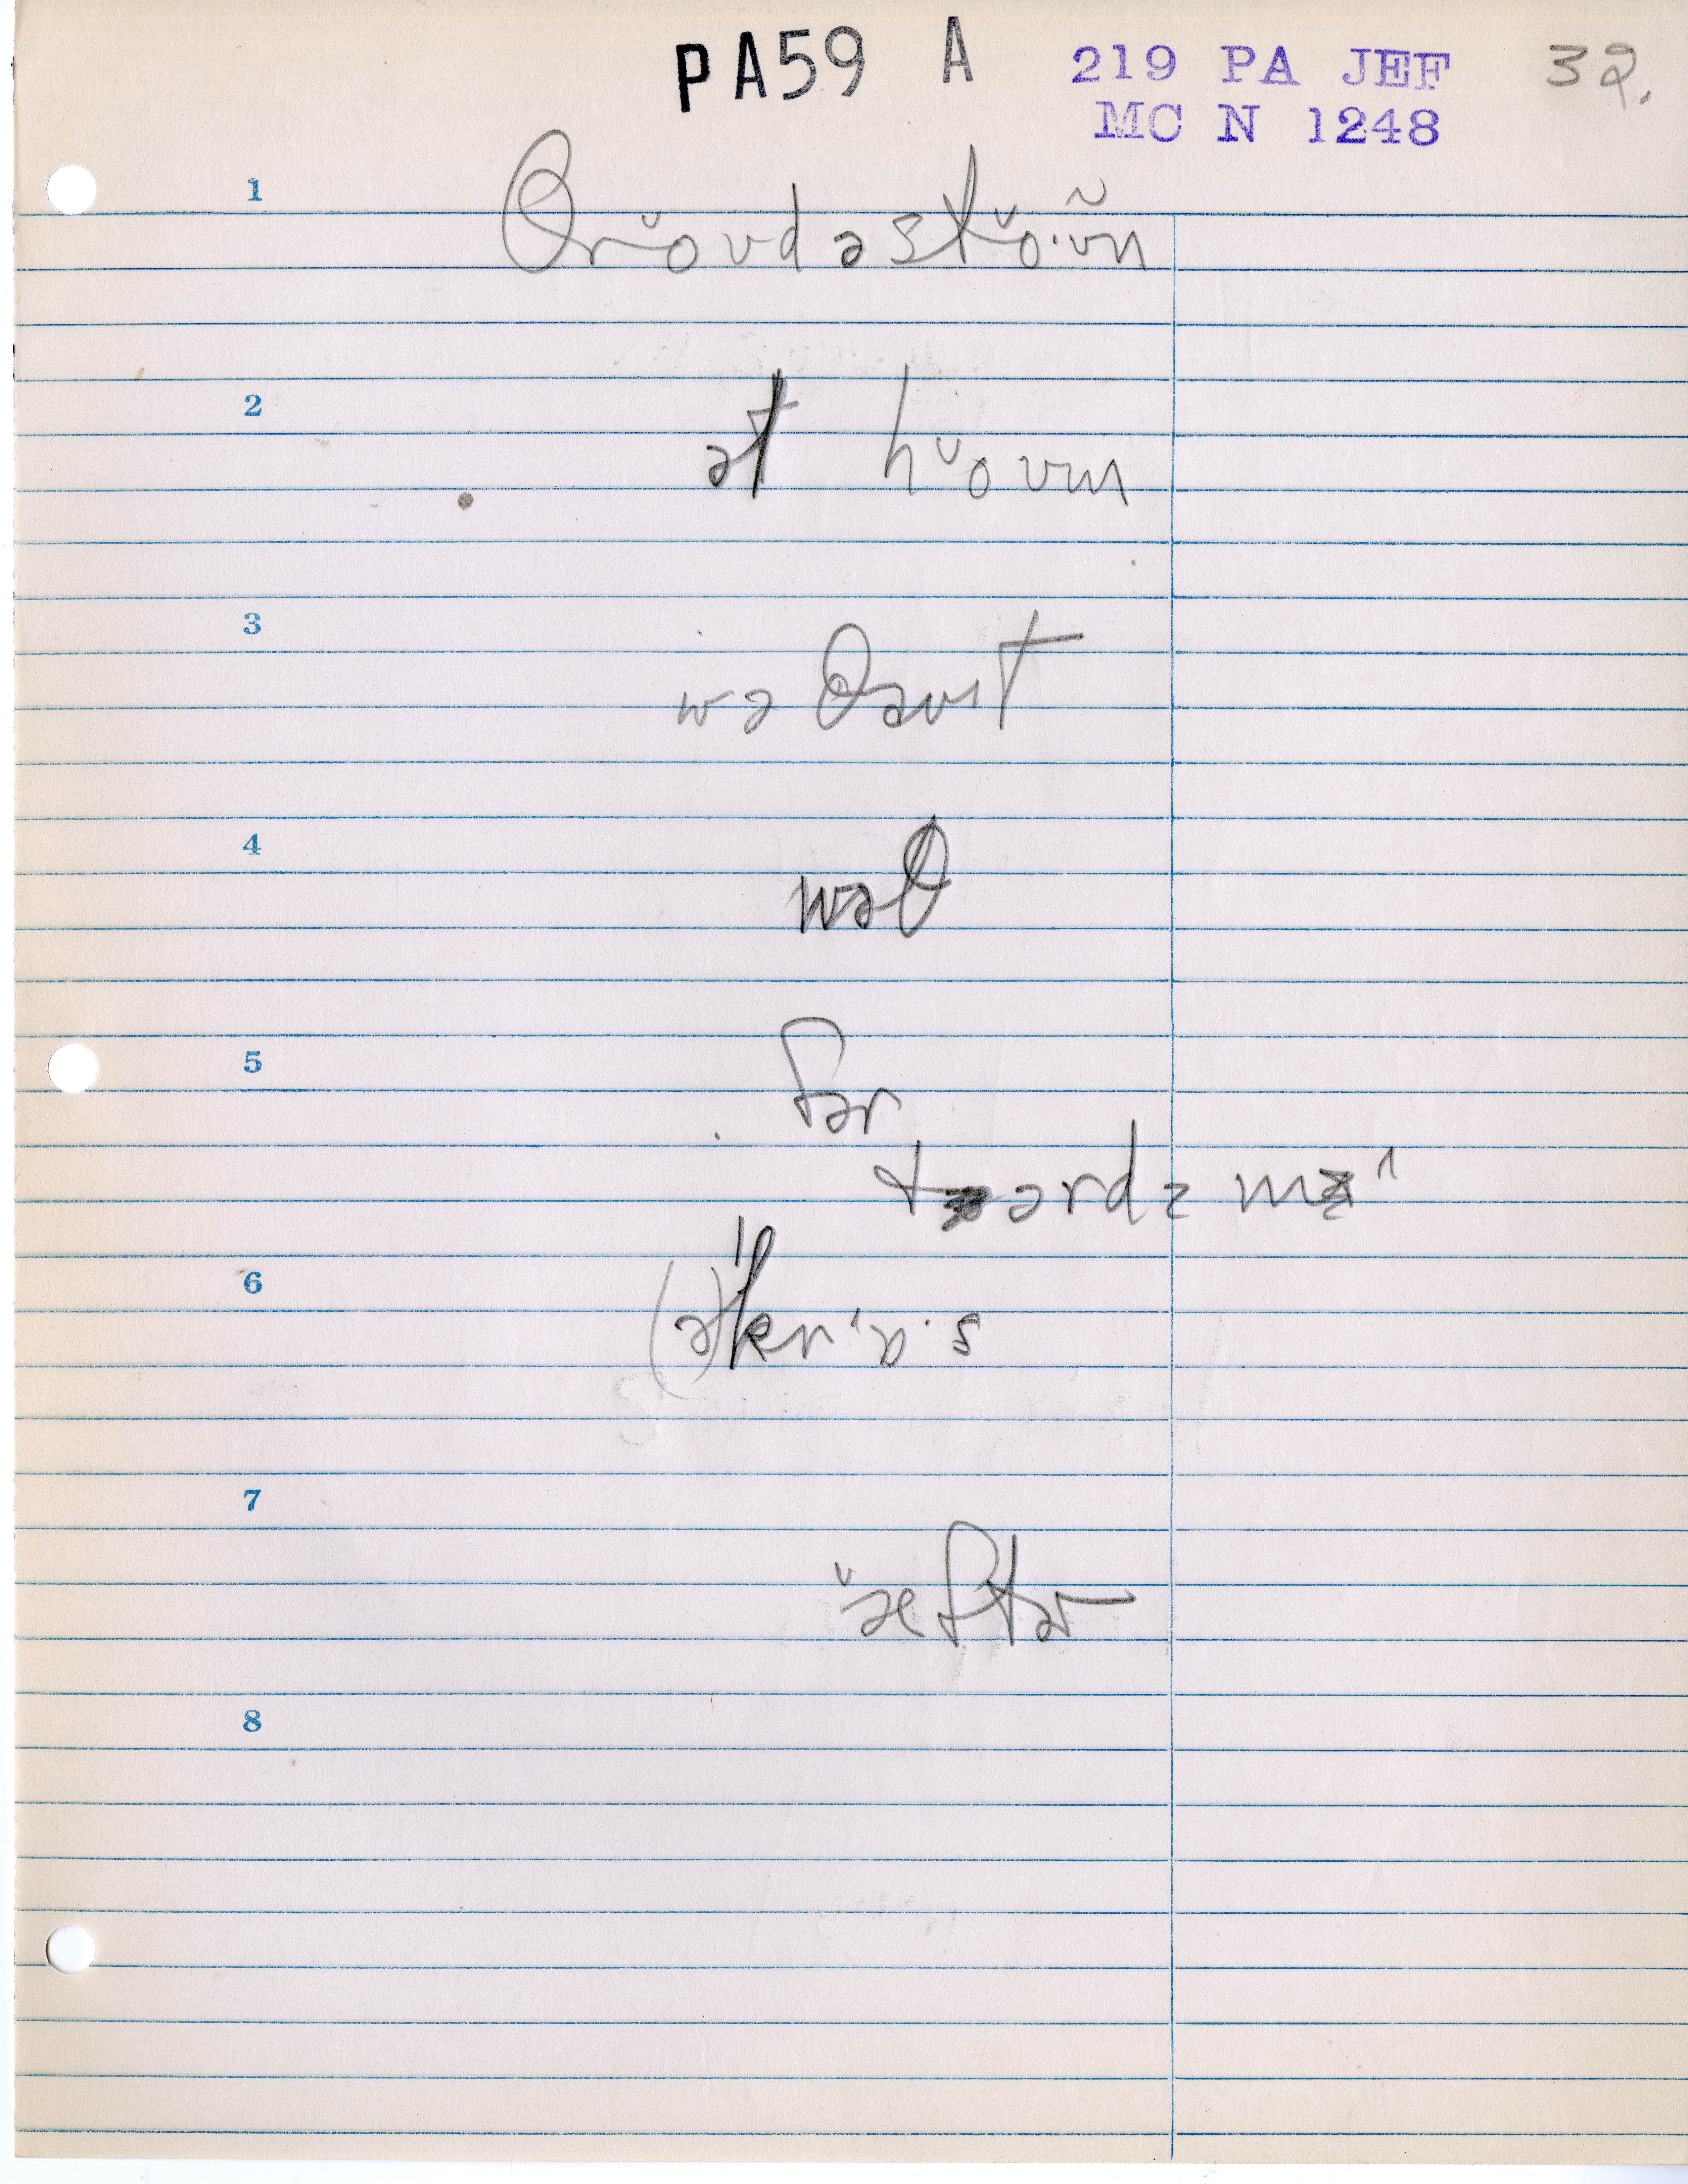 PA59 A 219 PA JEF 32.
MC N 1248
1
θrˇoʊdəstˇo·ʊ̃n
2
ət hˇoʊm
3
wəθaʊt
4
wəθ
5
fər
tərdz m
6
(ə)krˈɒ·s
7
ˇæftər
8